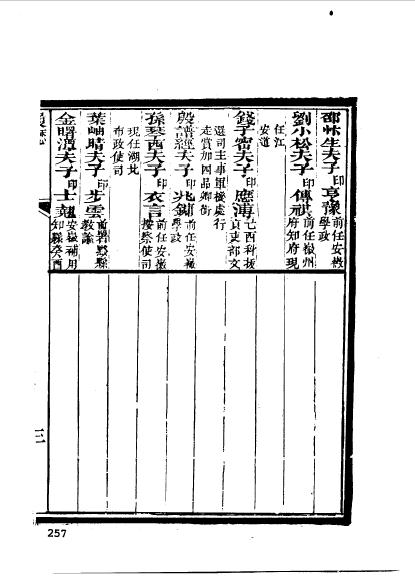 邵汴生夫子印亨豫 前任安徽學政
劉小松夫子印傳祺 前任徽州府知府現
任江安道
錢子密夫子印應溥 己酉科拔貢吏部文
選司主事軍機處行走賞加四品卿銜
殷譜經夫子印兆鏞 前任安徽學政
孫琴西夫子印衣言 前任安徽按察使司
現任湖北布政使司
葉岫晴夫子印步雲 前署黟縣教諭
金曙潭夫子印士 安徽補用知縣癸酉
三
257